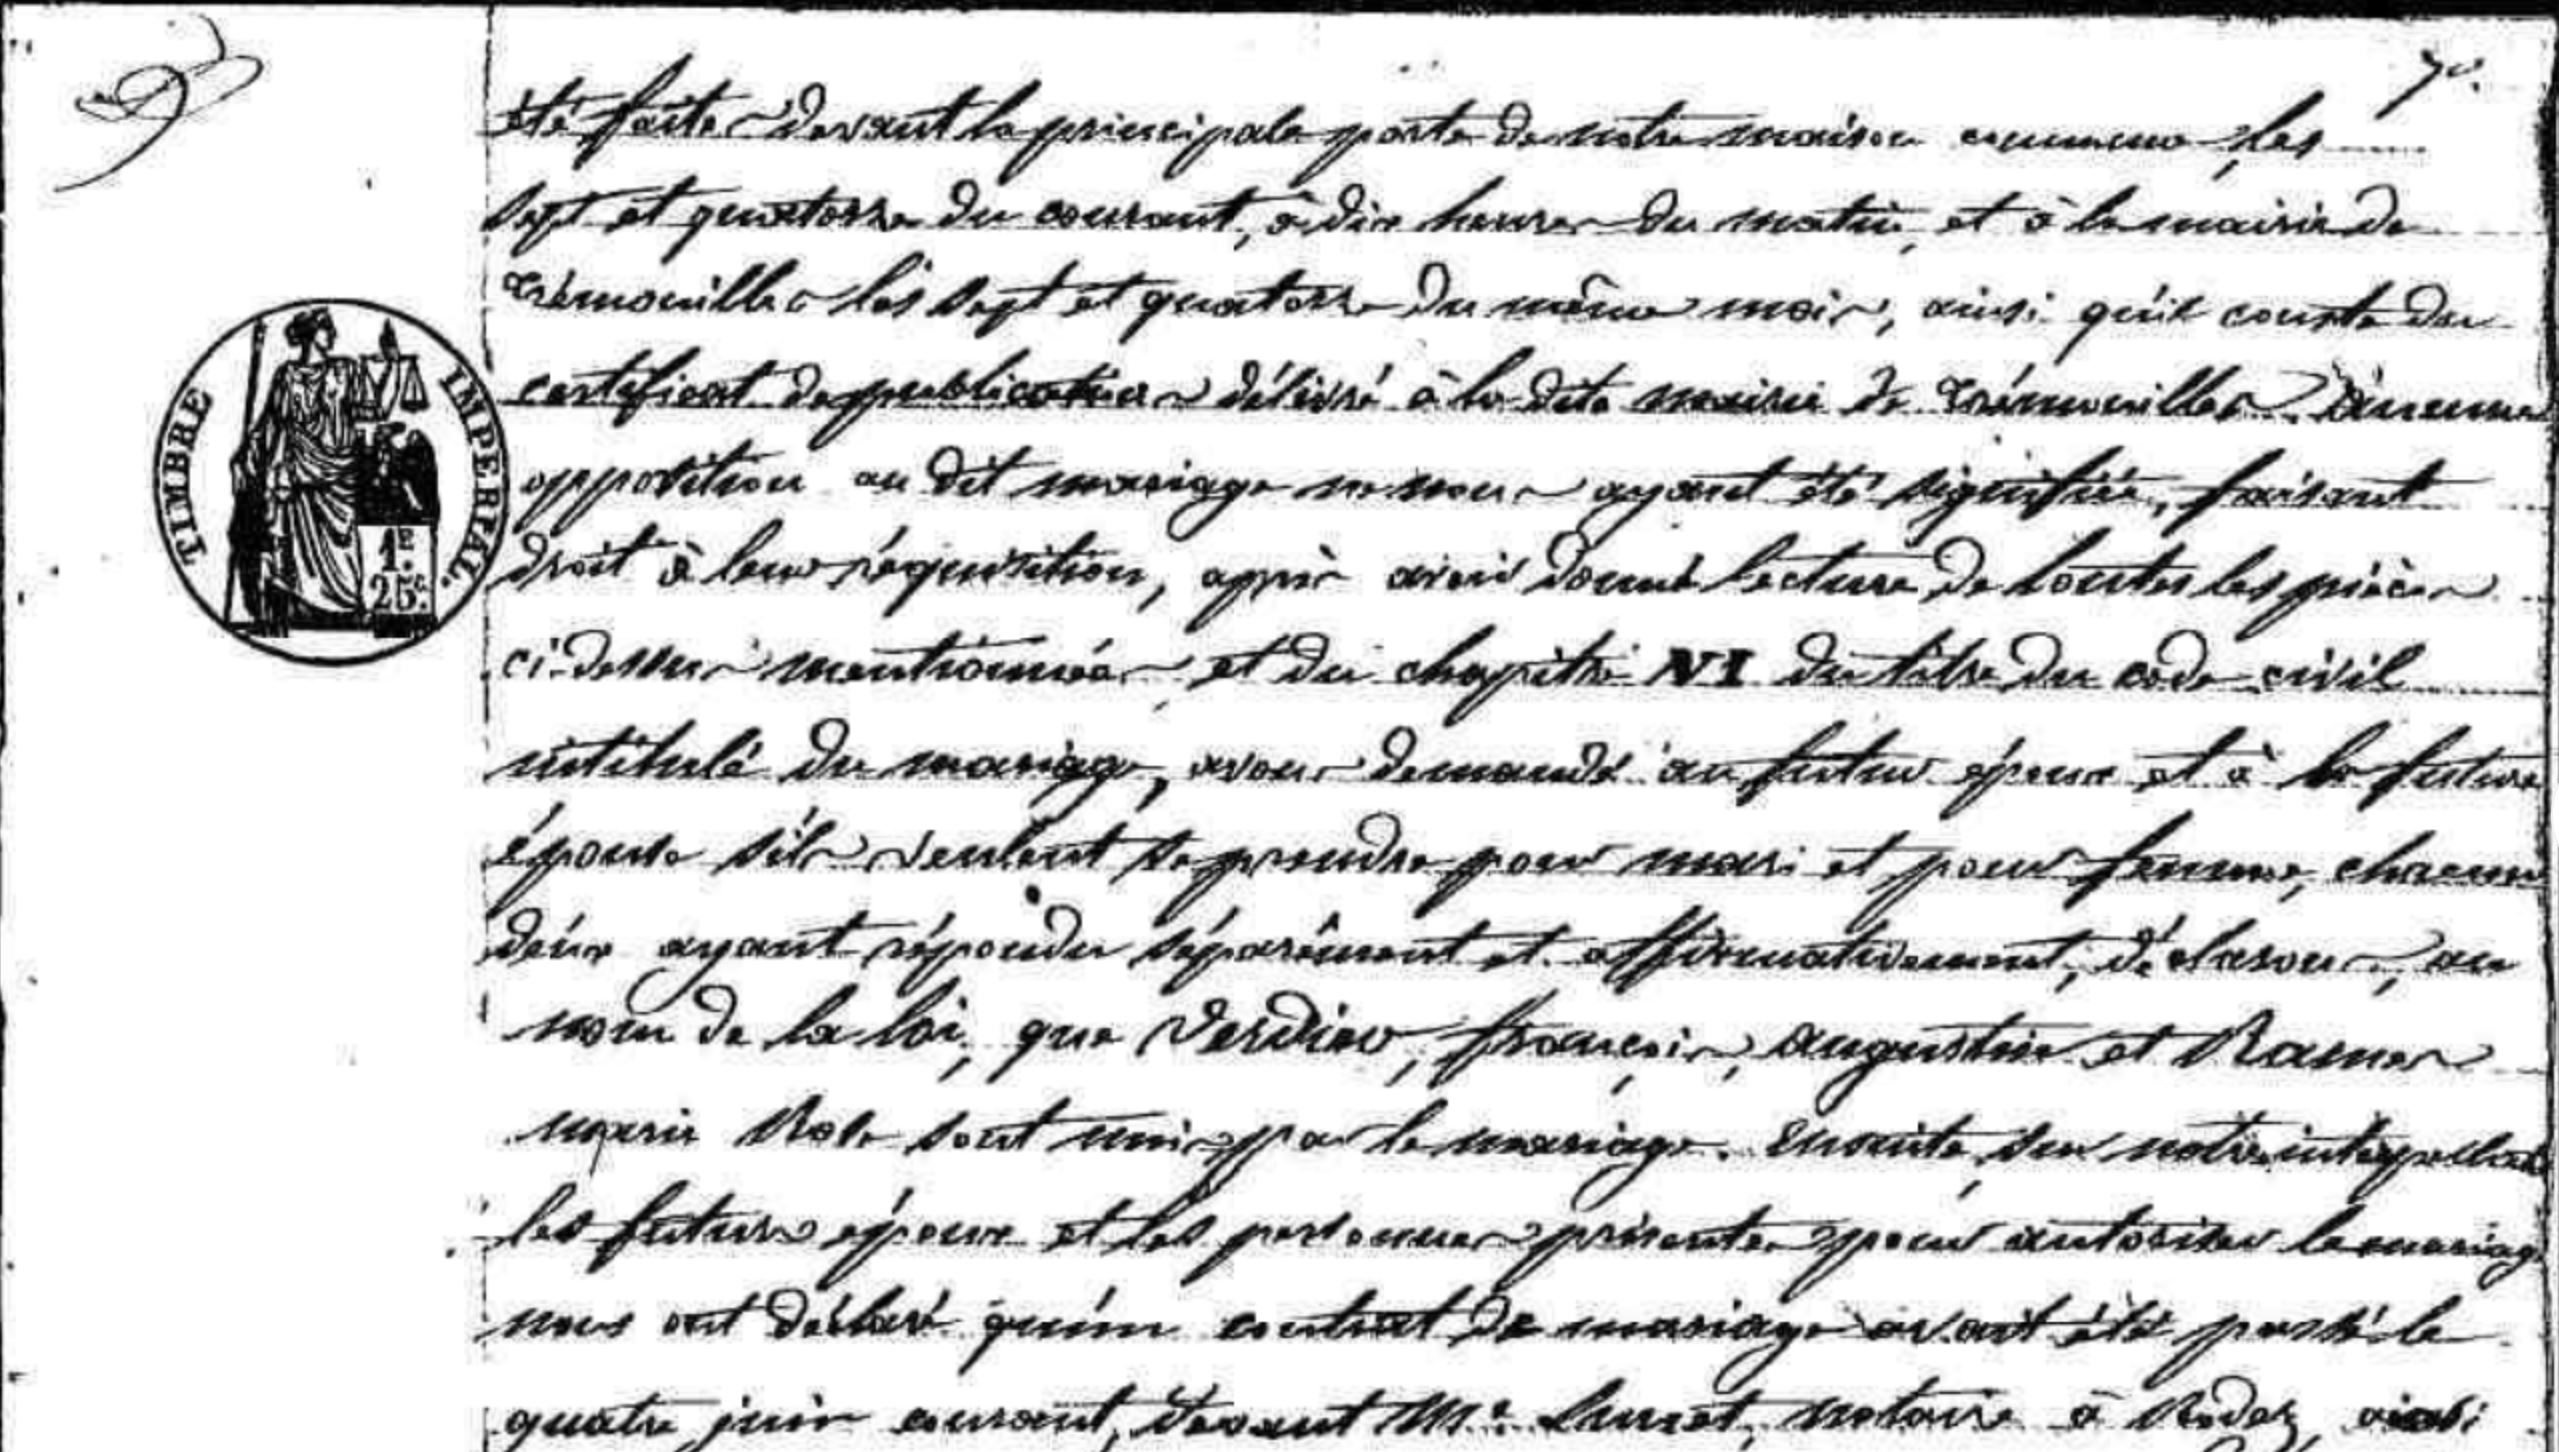 7e.
été faites devant la principale porte de notre maison commune, les
sept et quatorze du courant, à dix heures du matin, et à la mairie de
Trémouilles les sept et quatorze du même mois, ainsi qu'il conste du
certificat de publications délivré à la dite mairie de Trémouilles. Aucune
opposition au dit mariage ne nous ayant été signifiée, faisant
droit à leur réquisition, après avoir donné lecture de toutes les pièces
ci-dessus mentionnées et du chapitre VI du titre du code civil
intitulé du mariage, avons demandé au futur époux et à la future
épouse s'ils veulent se prendre pour mari et pour femme, chacun
d'eux ayant répondu séparément et affirmativement, déclarons, au
nom de la loi, que Verdier, françois, augustin et Rames
marie Rose sont unis par le mariage. Ensuite, sur notre
les futurs époux et les personnes présentes pour autoriser le mariage
nous ont déclaré qu'un contrat de mariage avait été passé le
quatre juin courant, devant Me. Lunet, notaire à Rodez, ainsi
TIMBRE IMPERIAL.
1F.
25c.